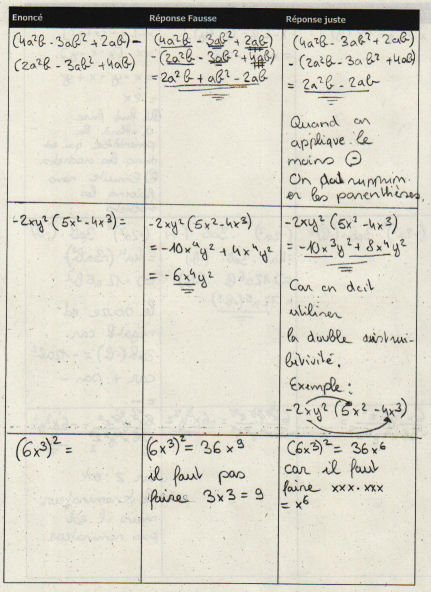 Enoncé
Réponse Fausse
Réponse juste
(4a²b - 3ab² + 2ab) -
(2a²b - 3ab² + 4ab)
(4a²b - 3ab² + 2ab)
-(2a²b - 3ab² + 4ab)
= 2a²b + ab² - 2ab
(4a²b - 3ab² + 2ab)
- (2a²b - 3ab² + 4ab)
= 2a²b - 2ab
Quand on
applique le
moins ⊖
On doit supprim
er les parenthèses.
-2xy² (5x² - 4x³) =
-2xy² (5x² - 4x³)
= -10x⁴y² + 4x⁴y²
= -6x⁴y²
-2xy² (5x² - 4x³)
= -10x³y² + 8x⁴y²
Car on doit
utiliser
la double distri-
bitivité.
Exemple :
-2xy² (5x² - 4x³)
(6x³)² =
(6x³)² = 36x⁹
il faut pas
faire 3x3 = 9
(6x³)² = 36x⁶
car il faut
faire xxx·xxx
= x⁶